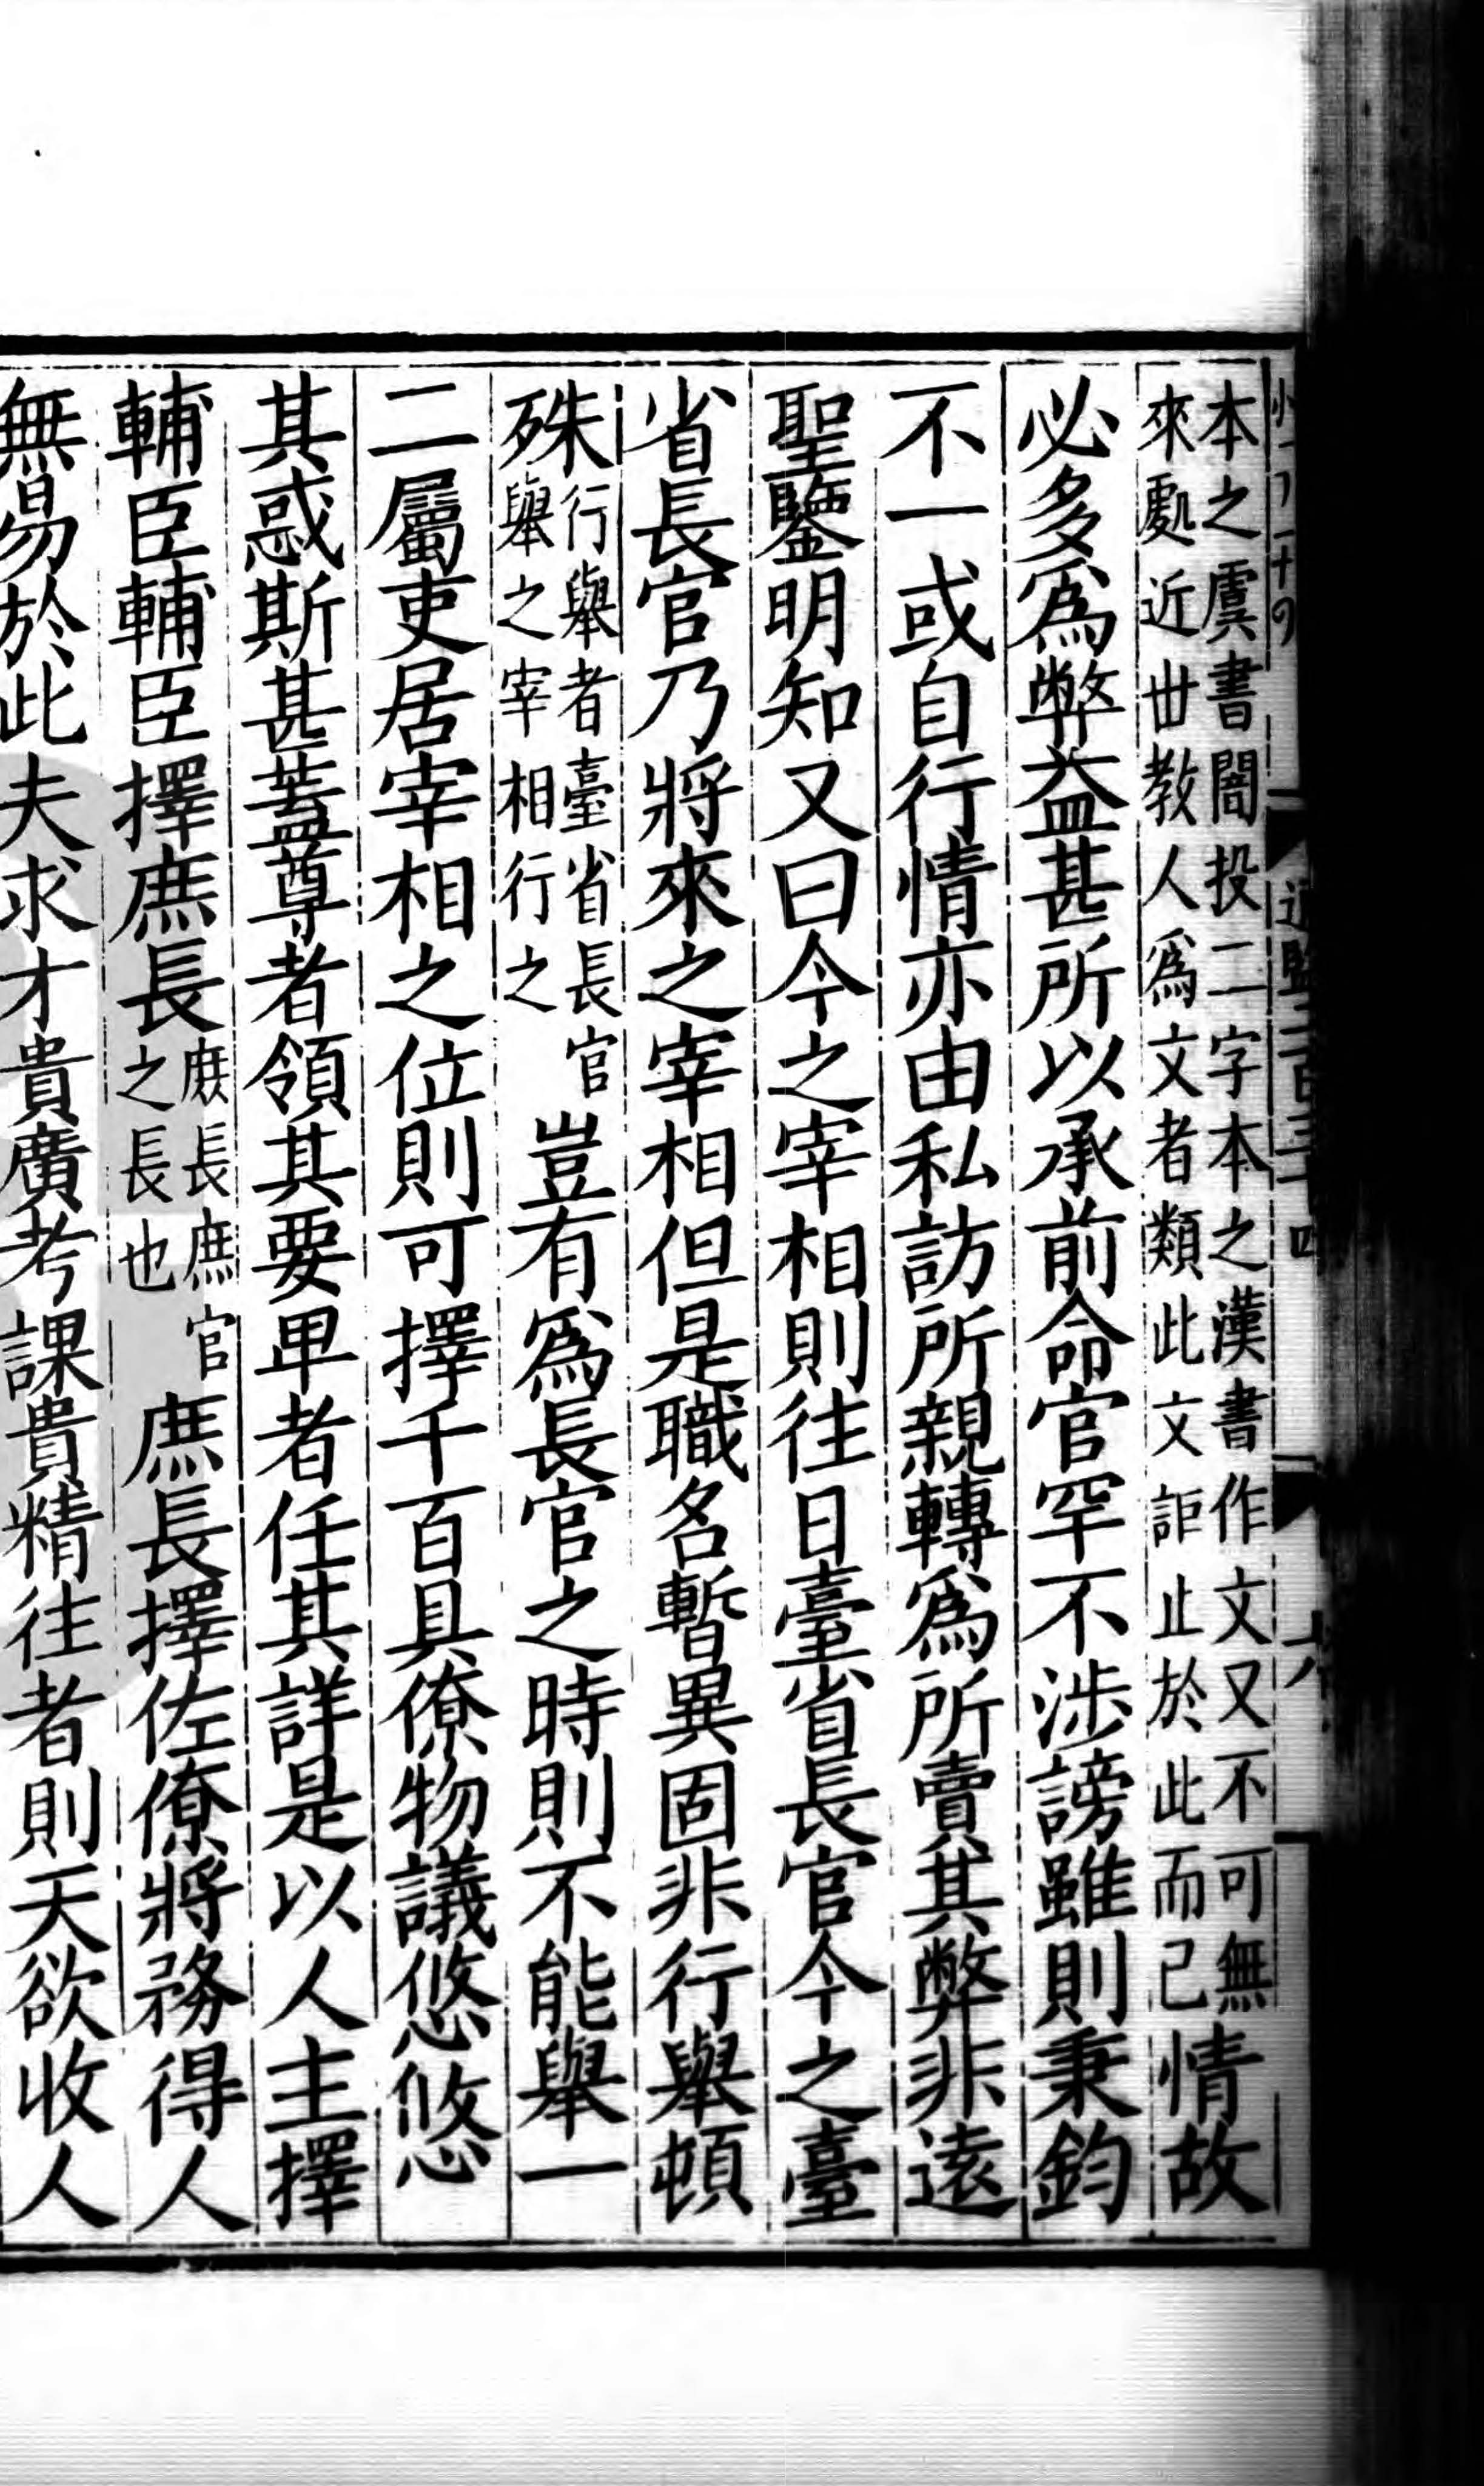 本之虞書闇投二字本之漢書作文又不可無
來處近世教人爲文者類此文詎止於此而已情故
必多爲弊益甚所以承前命官罕不涉謗雖則秉鈞
不一或自行情亦由私訪所親轉爲所賣其弊非遠
聖鑒明知又曰今之宰相則往日臺省長官今之臺
省長官乃將來之宰相但是職名暫異固非行舉頓
殊行舉者臺省長官
舉之宰相行之豈有爲長官之時則不能舉一
二屬吏居宰相之位則可擇千百具僚物議悠悠
其惑斯甚蓋尊者領其要卑者任其詳是以人主擇
輔臣輔臣擇庶長庶長庶官
之長也庶長擇佐僚將務得人
無易於此夫求才貴廣考課貴精往者則天欲收人